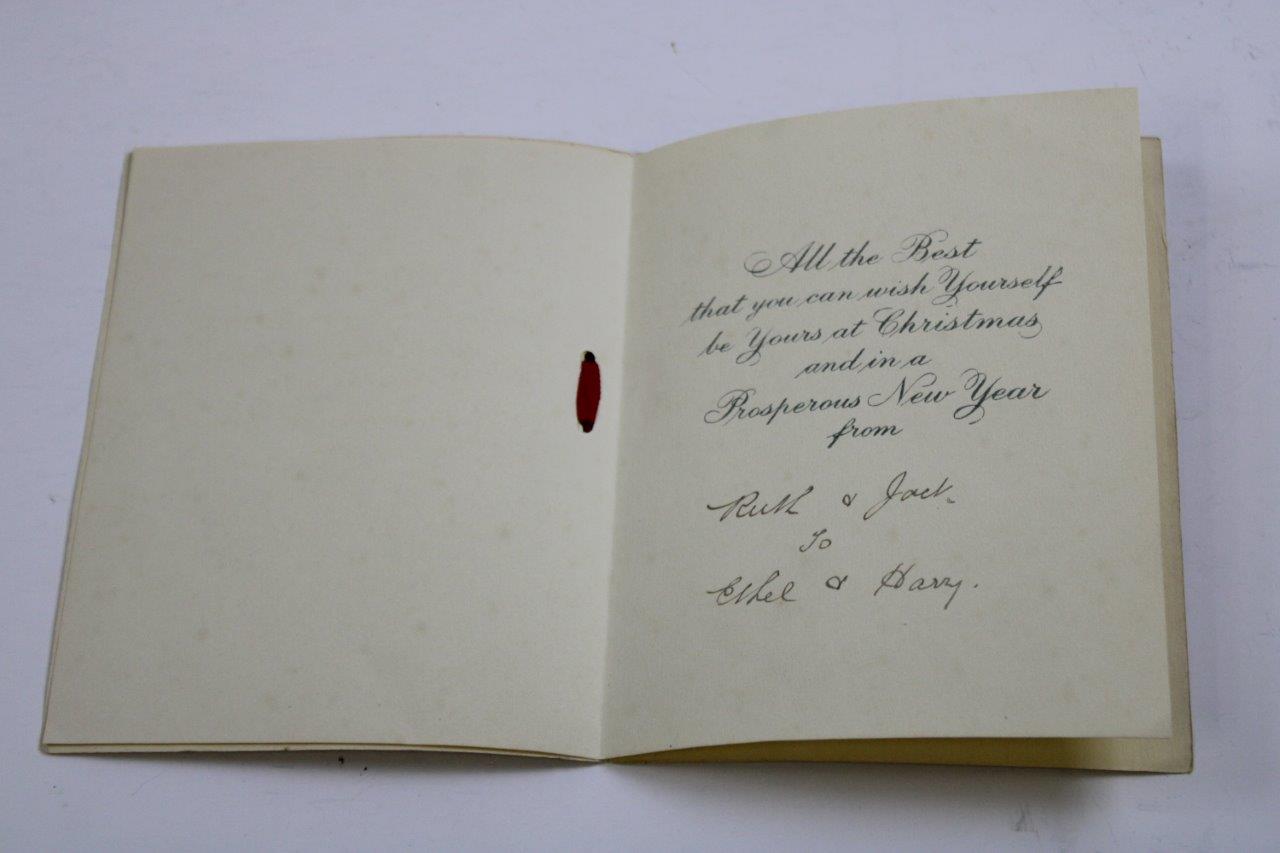 All the Best
that you can wish Yourself
be Yours at Christmas
and in a
Prosperous New Year
from
Ruth & Jack.
To
Ethel & Harry.